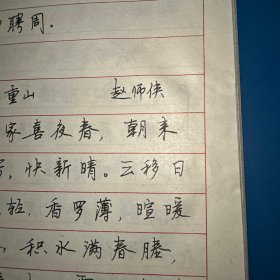 聘周.
重山 赵师侠
家喜夜春，朝来
，快新晴。云移日
轻，香罗薄，暄暖
积水满春塍，